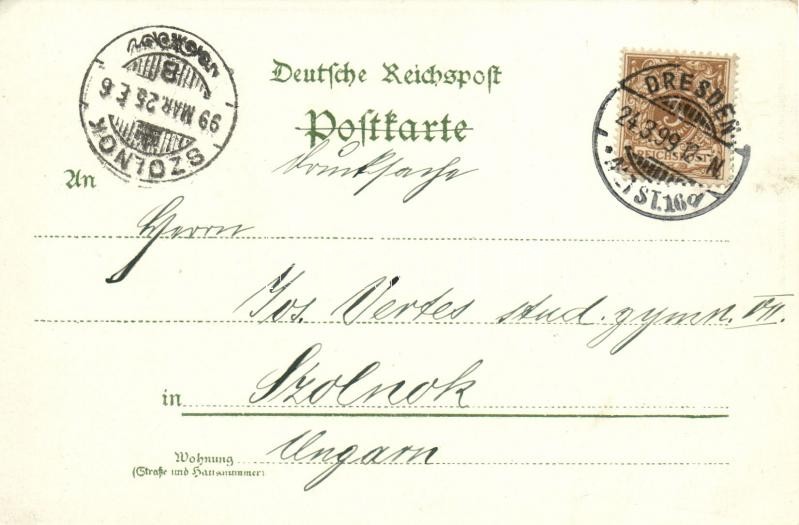 Deutsche Reichspost
Postkarte
Drucksache
An
Herrn
Jos. Vertes stud. gymn. VII.
in Szolnok
Ungarn
Wohnung
(Straße und Hausnummer)
SZOLNOK
99 MAR 25 E 6
B
DRESDEN
24.3.99 8-N
ST.16d
REICHSPOST